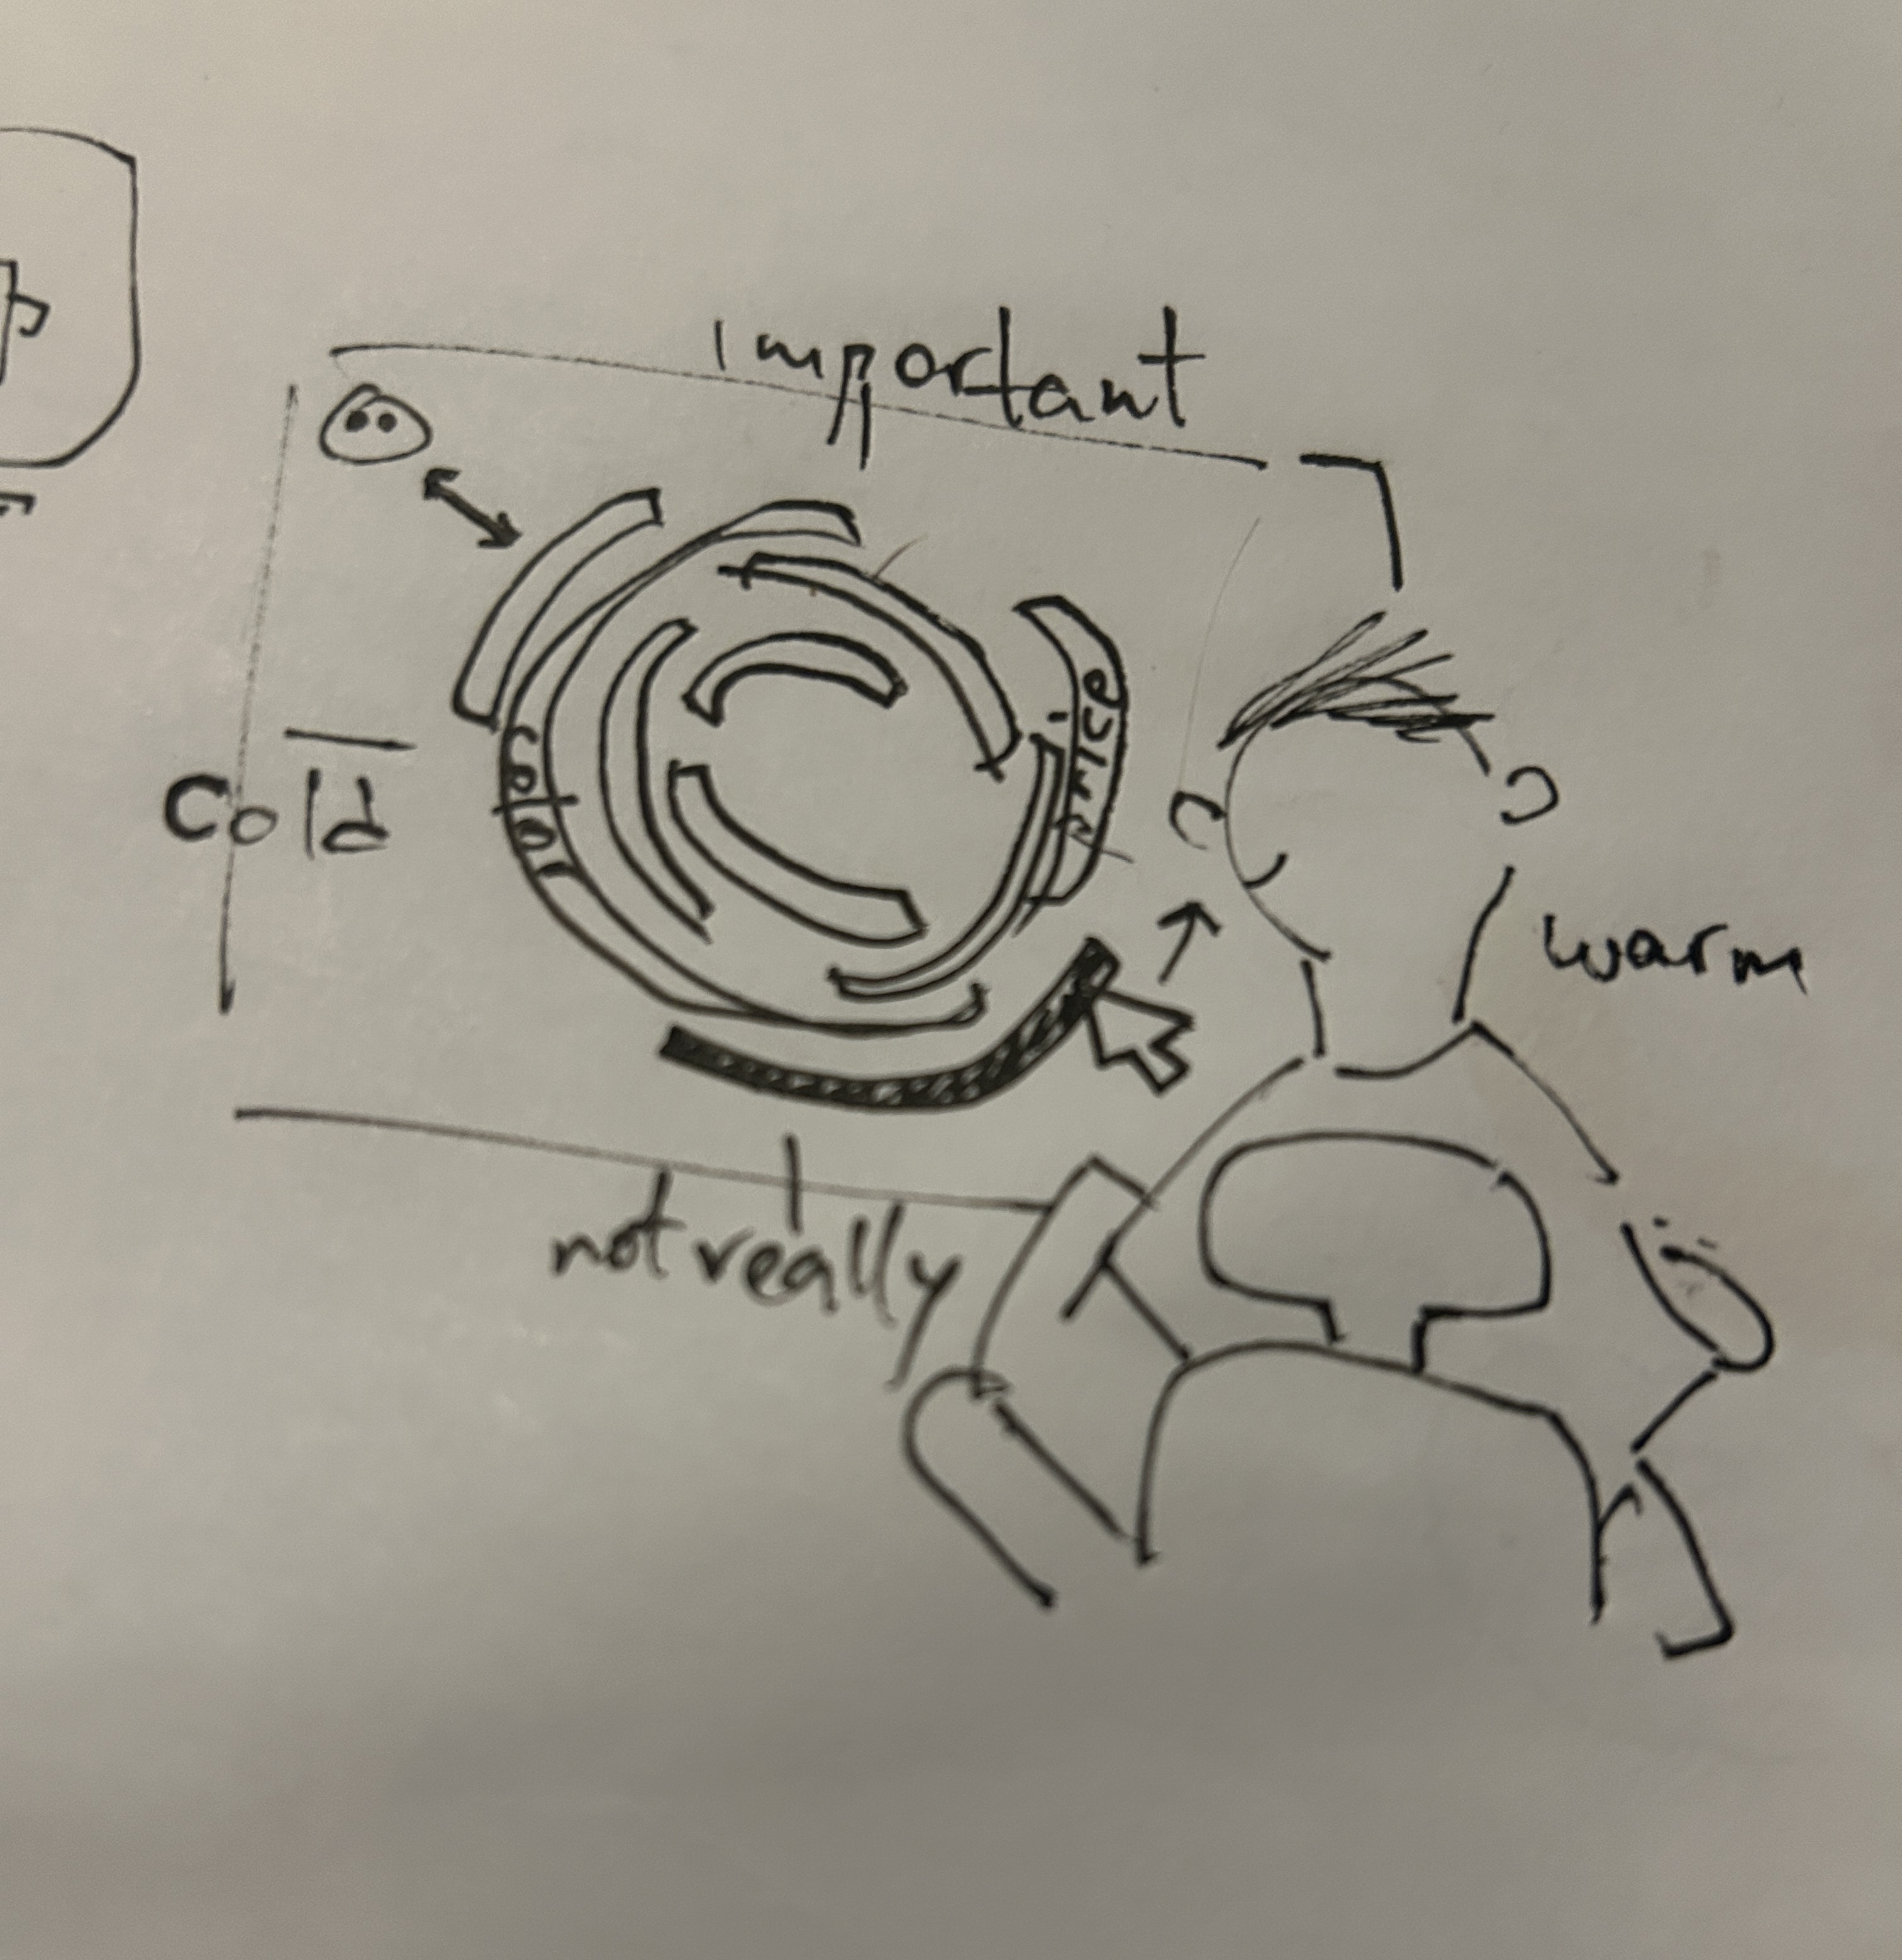 important
cold
color
price
warm
not really